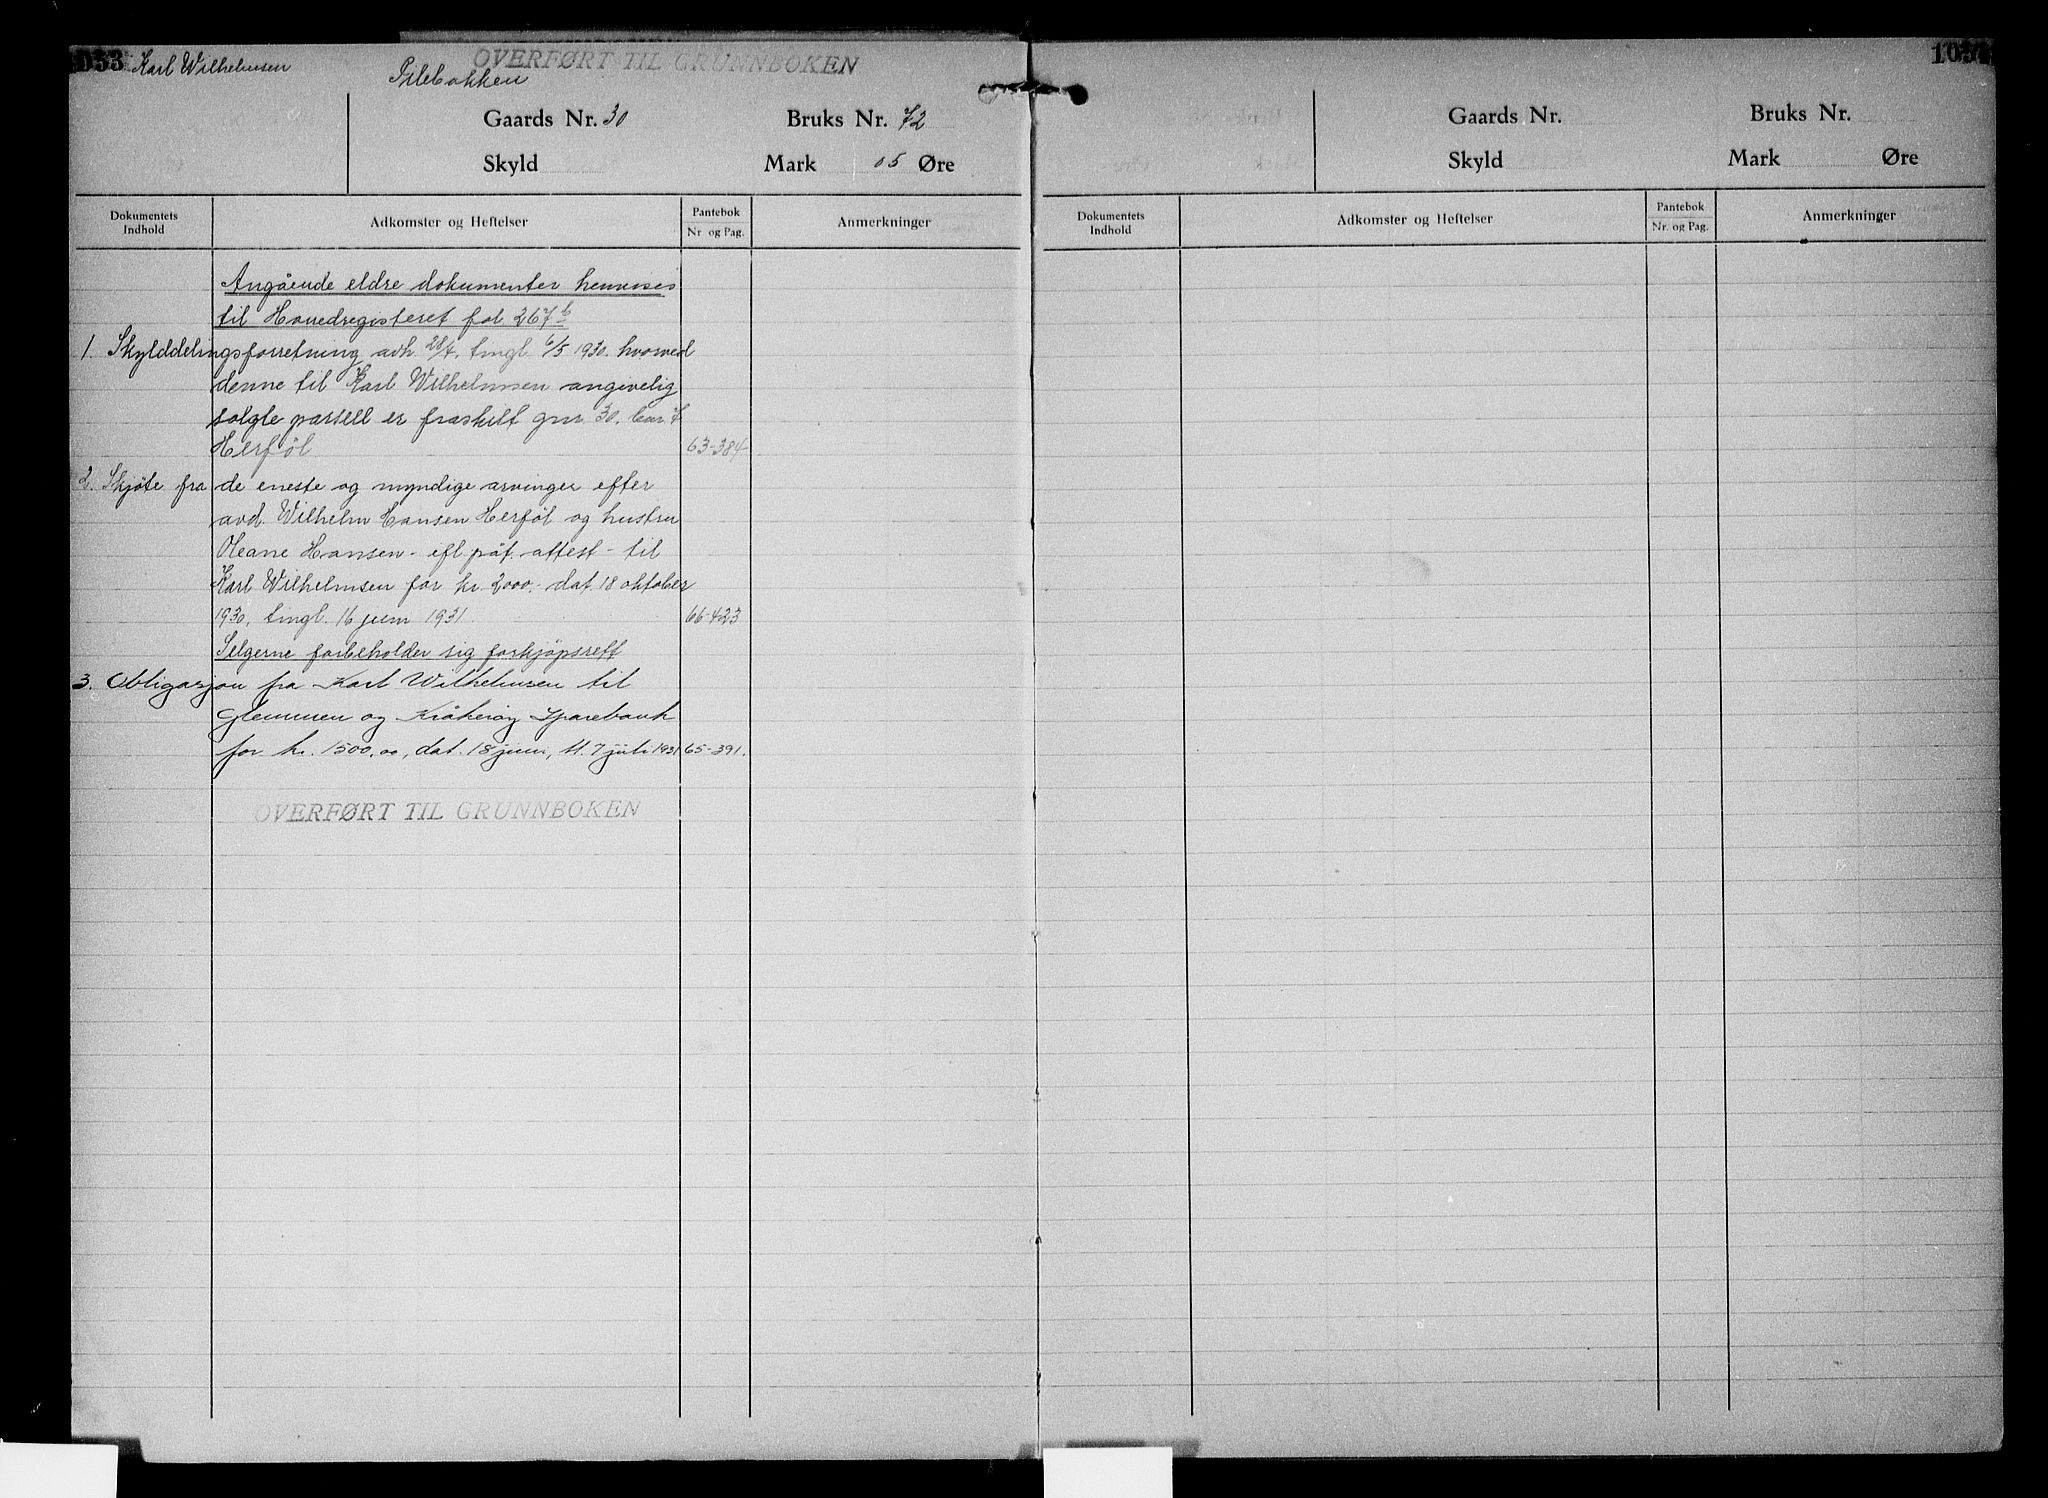 1053 Karl Wilhelmsen
OVERFØRT TIL GRUNNBOKEN
Pilebakken
Gaards Nr. 30 Bruks Nr. 72
Skyld Mark 05 Øre
Dokumentets Indhold
Adkomster og Heftelser
Pantebok Nr. og Pag.
Anmerkninger
Angående eldre dokumenter henvises
til Hovedregisteret fol 267 b
1. Skylddelingsforretning avh. 28/4, tingl. 6/5 1930. hvorved
denne til Karl Wilhelmsen angivelig
solgte parsell er fraskilt gnr. 30. bnr. 7
Herføl 63-384
2. Skjøte fra de eneste og myndige arvinger efter
avd. Wilhelm Hansen Herføl og hustru
Oleane Hansen - efl. påt. attest - til
Karl Wilhelmsen for kr. 2000,- dat. 18 oktober
1930, tingl. 16 juni 1931 66-423
Selgerne forbeholder sig forkjøpsrett
3. Obligasjon fra Karl Wilhelmsen til
Glemmen og Kråkerøy Sparebank
for kr. 1500,00, dat. 18 juni, tl. 7 juli 1931 65-391.
OVERFØRT TIL GRUNNBOKEN
1054
Gaards Nr. Bruks Nr.
Skyld Mark Øre
Dokumentets Indhold
Adkomster og Heftelser
Pantebok Nr. og Pag.
Anmerkninger